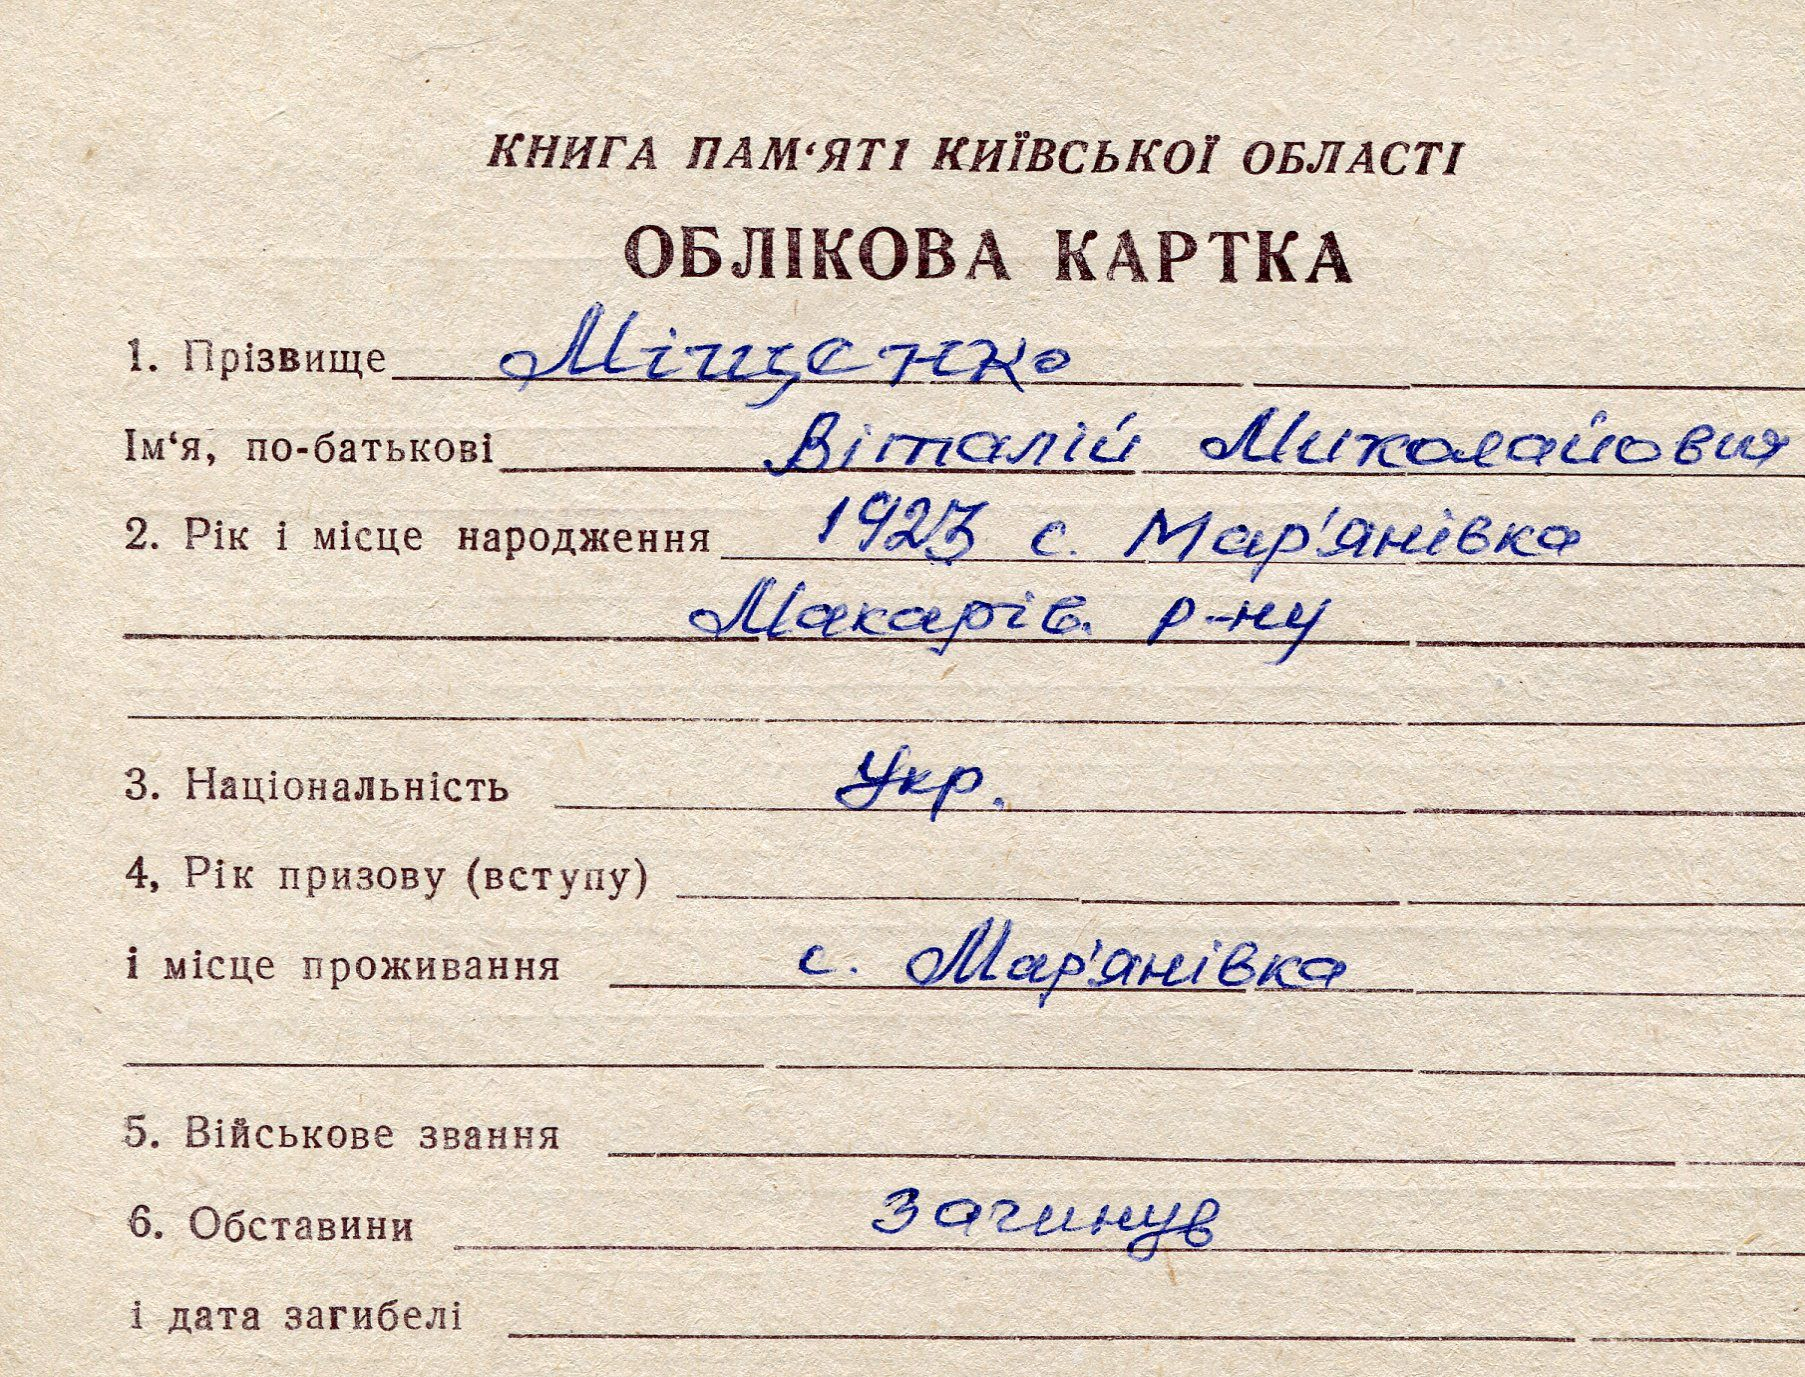 КНИГА ПАМ‘ЯТІ КИЇВСЬКОЇ ОБЛАСТІ
ОБЛІКОВА КАРТКА
1. Прізвище Міщенко
Ім‘я, по-батькові Віталій Миколайович
2. Рік і місце народження 1923 с. Мар'янівка
Макарів. р-ну
3. Національність Укр.
4, Рік призову (вступу)
і місце проживання с. Мар'янівка
5. Військове звання
6. Обставини Загинув
і дата загибелі